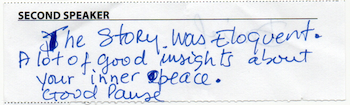 SECOND SPEAKER
The Story Was Eloquent.
A lot of good insights about
your inner peace.
Good Pause